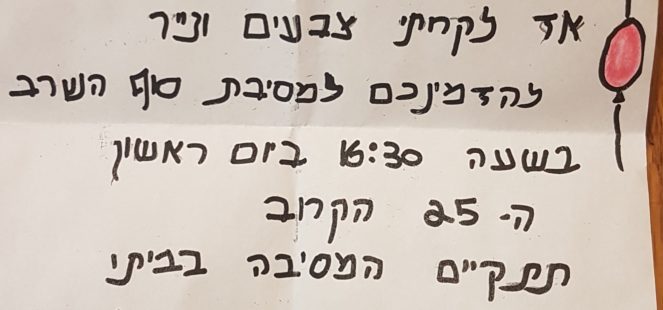 אז לקחתי צבעים ונייר
להזמינכם למסיבת סוף השרב
בשעה 16:30 ביום ראשון
ה- 25 הקרוב
תתקיים המסיבה בביתי